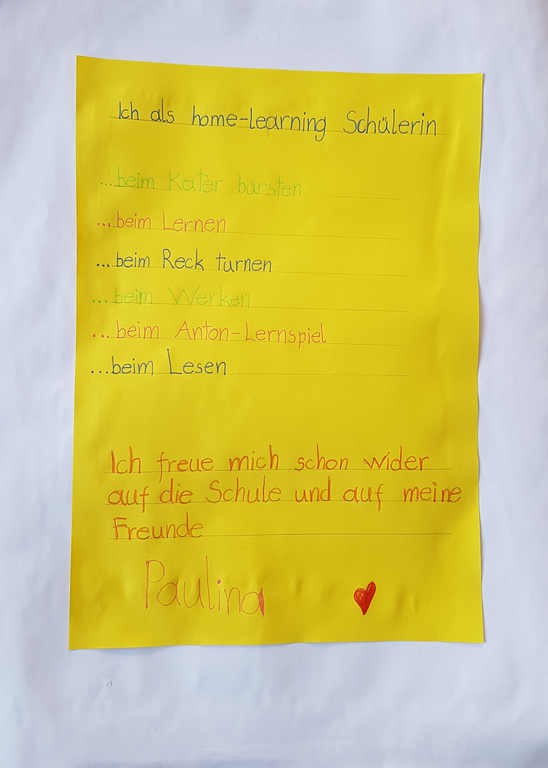 Ich als home-learning Schülerin
...beim Kater bürsten
...beim Lernen
...beim Reck turnen
...beim Werken
...beim Anton-Lernspiel
...beim Lesen
Ich freue mich schon wider
auf die Schule und auf meine
Freunde
Paulina